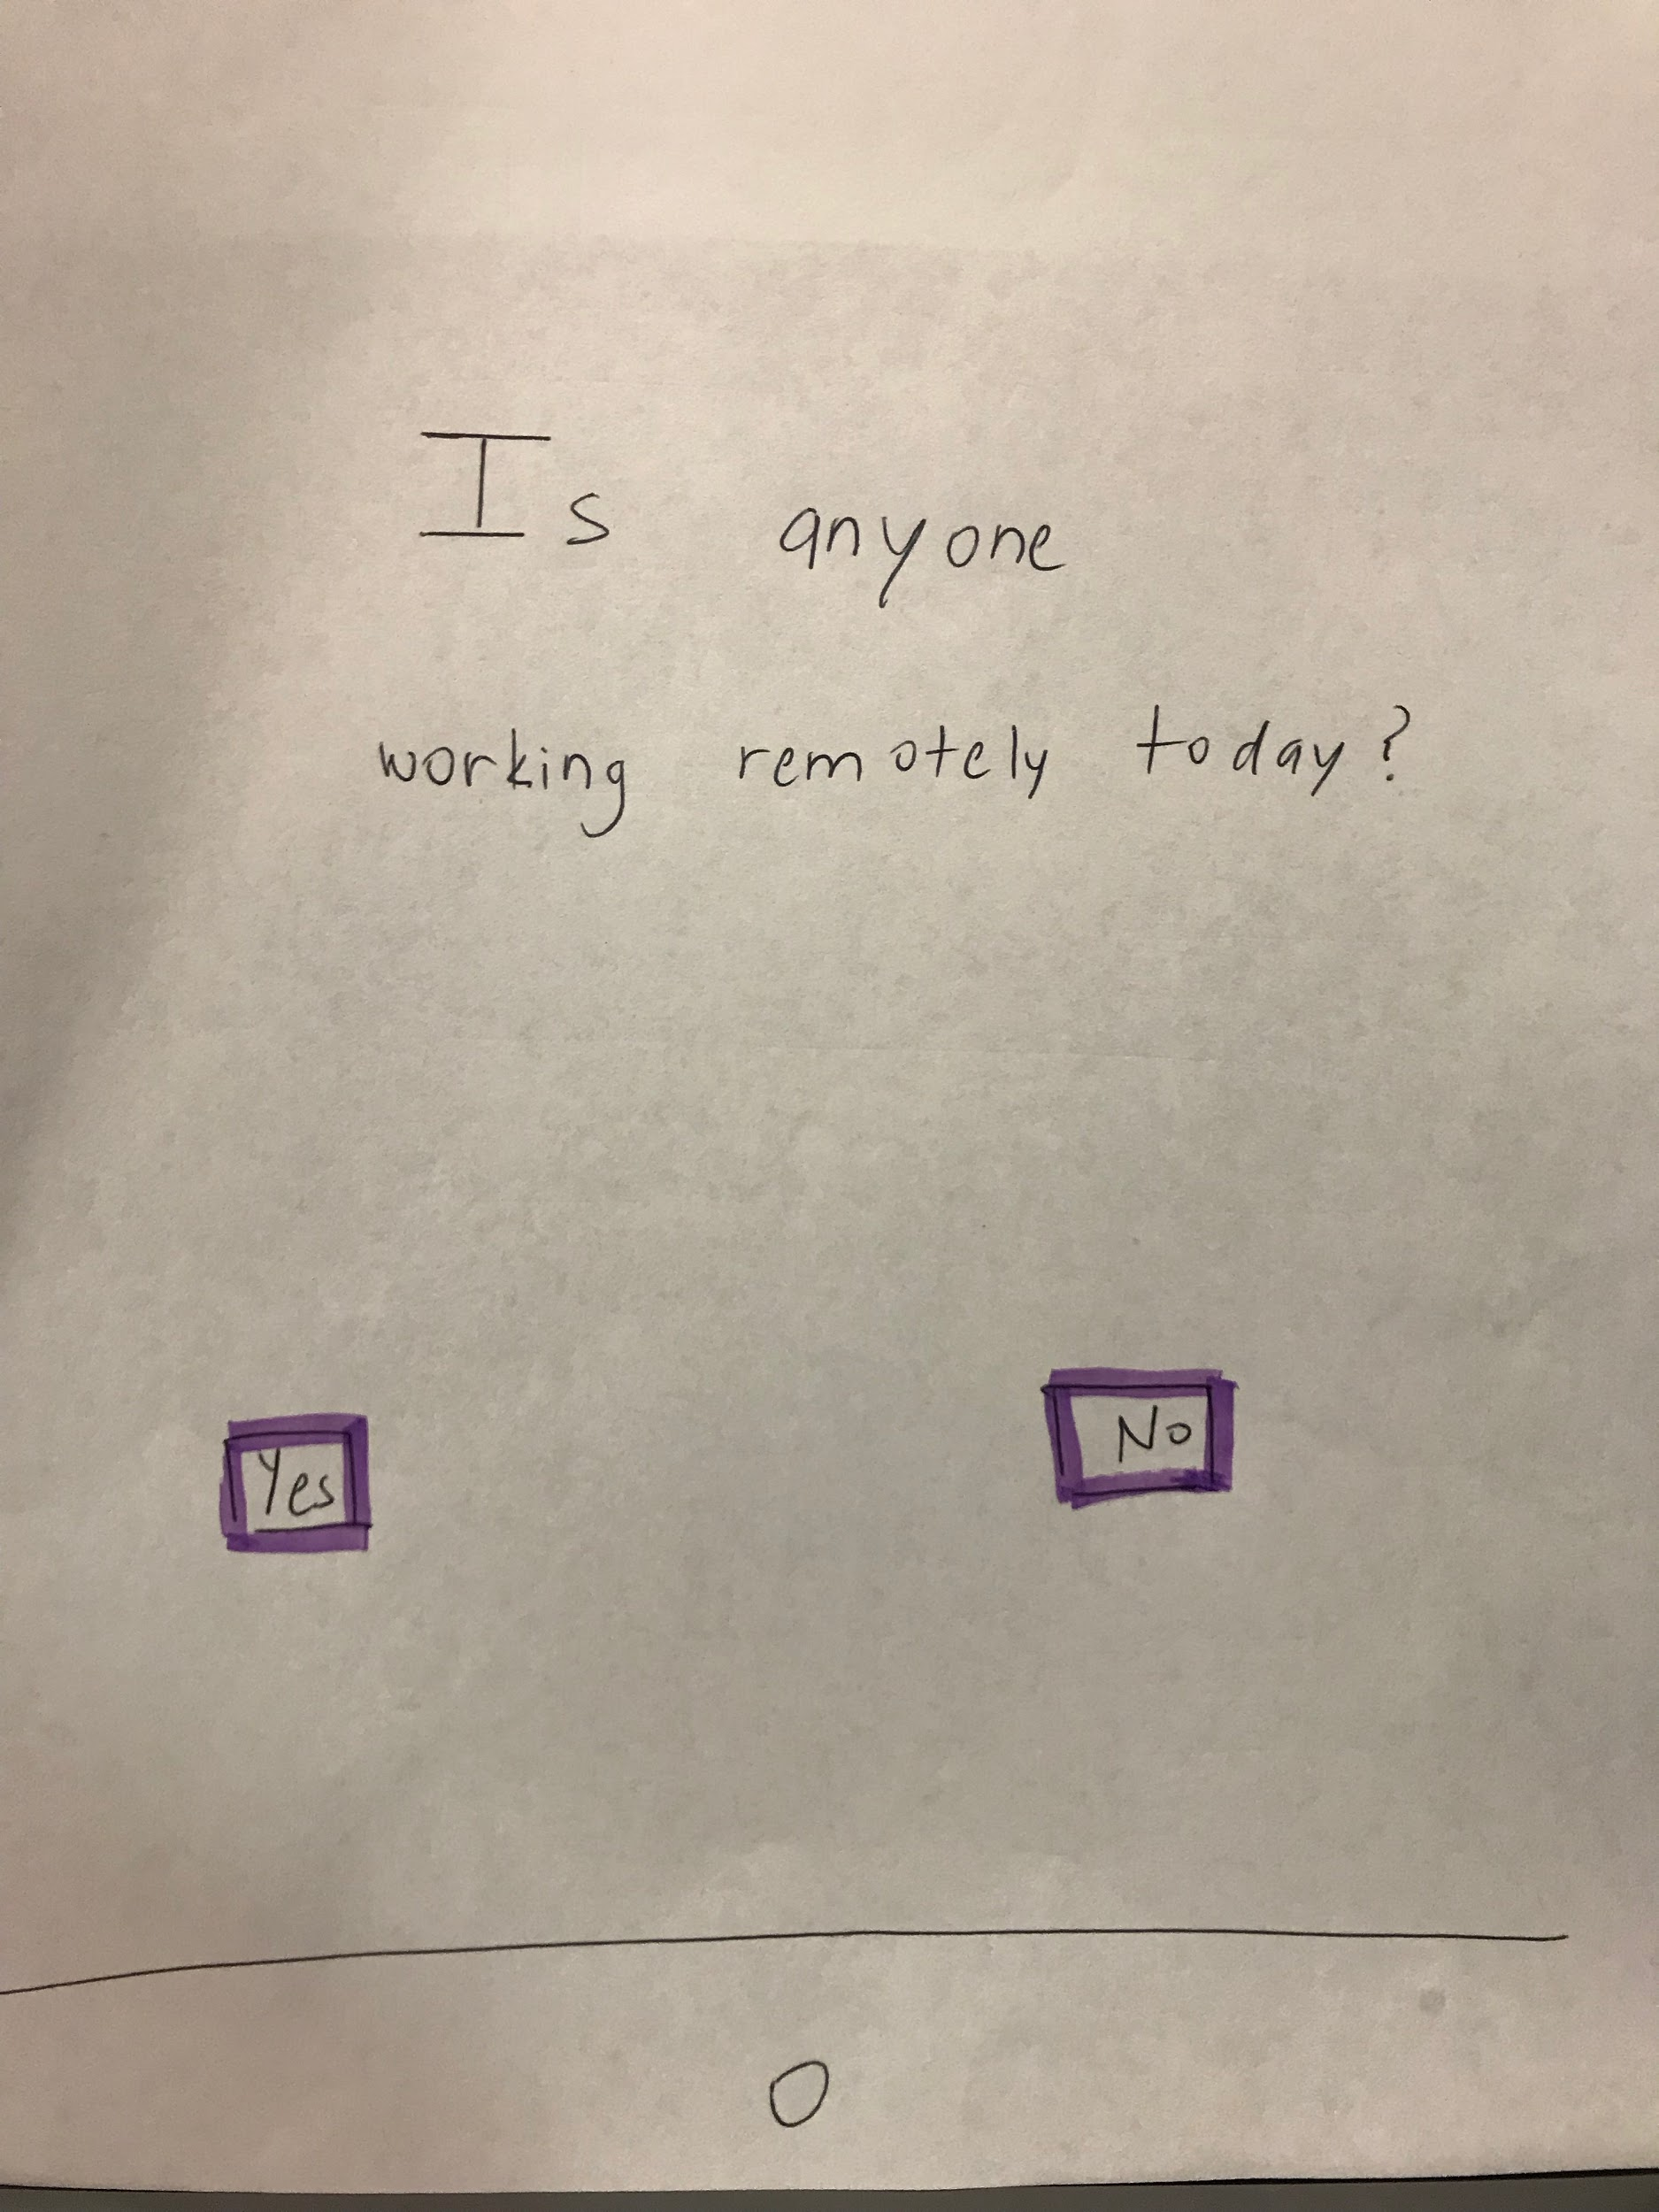 Is anyone
working remotely today?
Yes
No